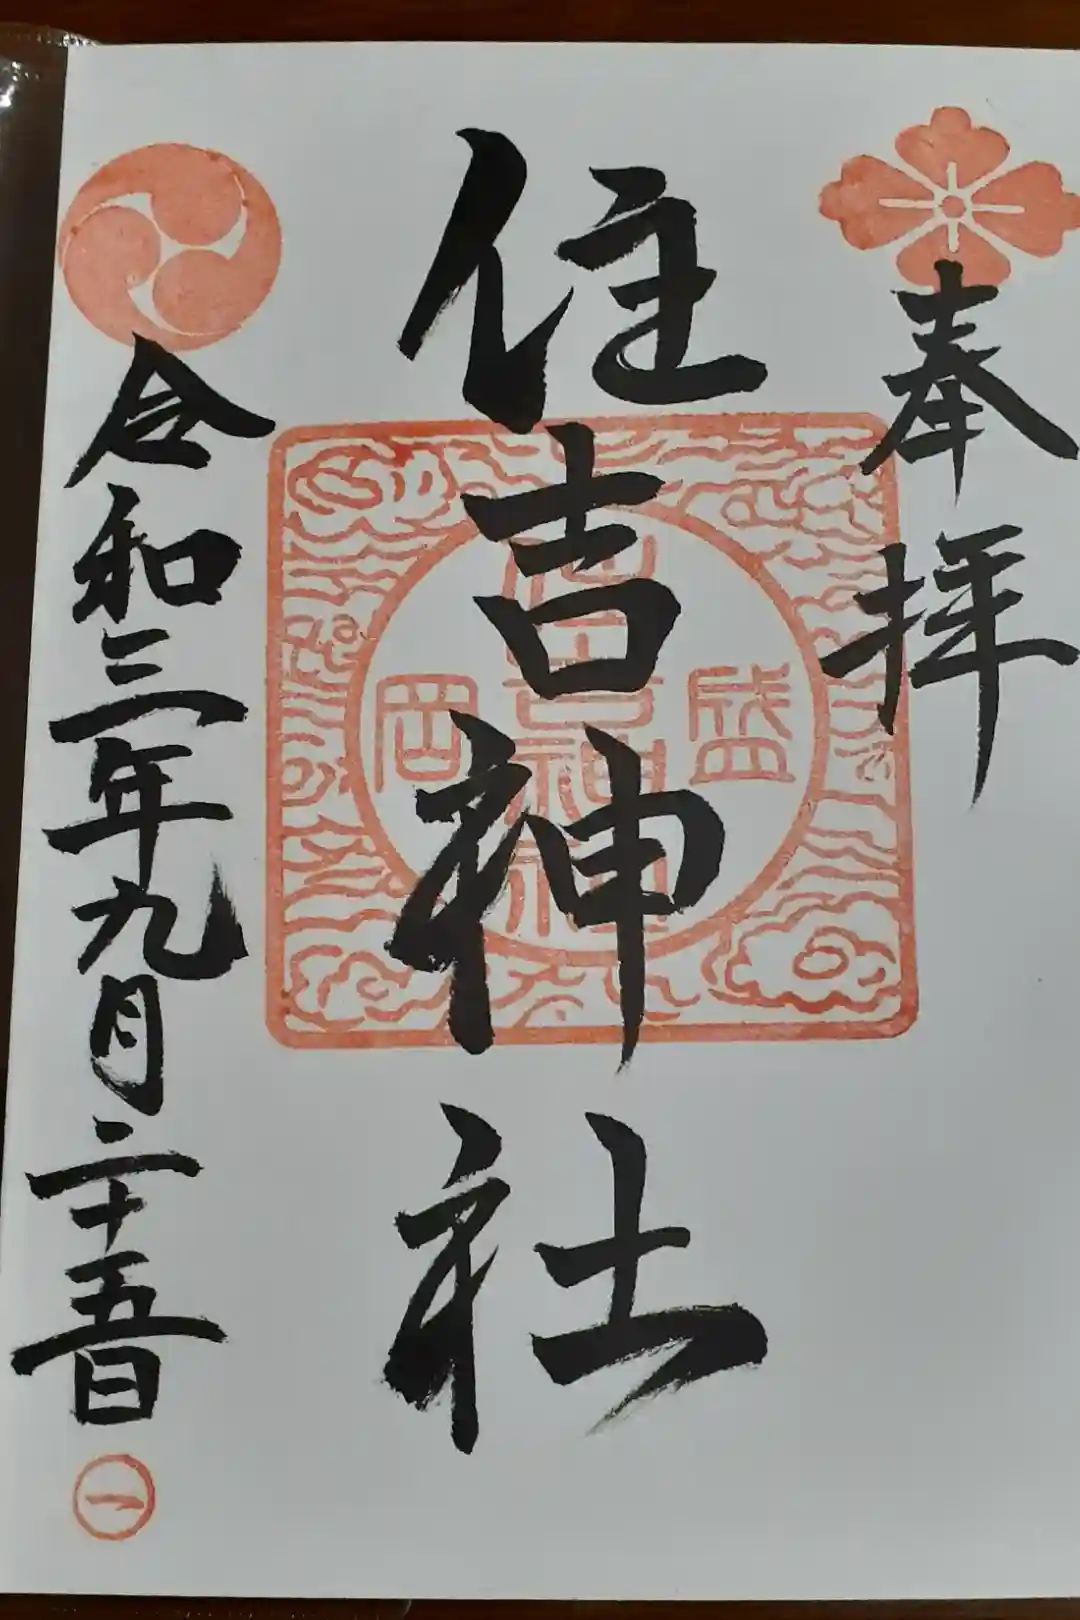 奉拝
住吉神社
盛岡
住吉神社
令和三年九月二十五日
一